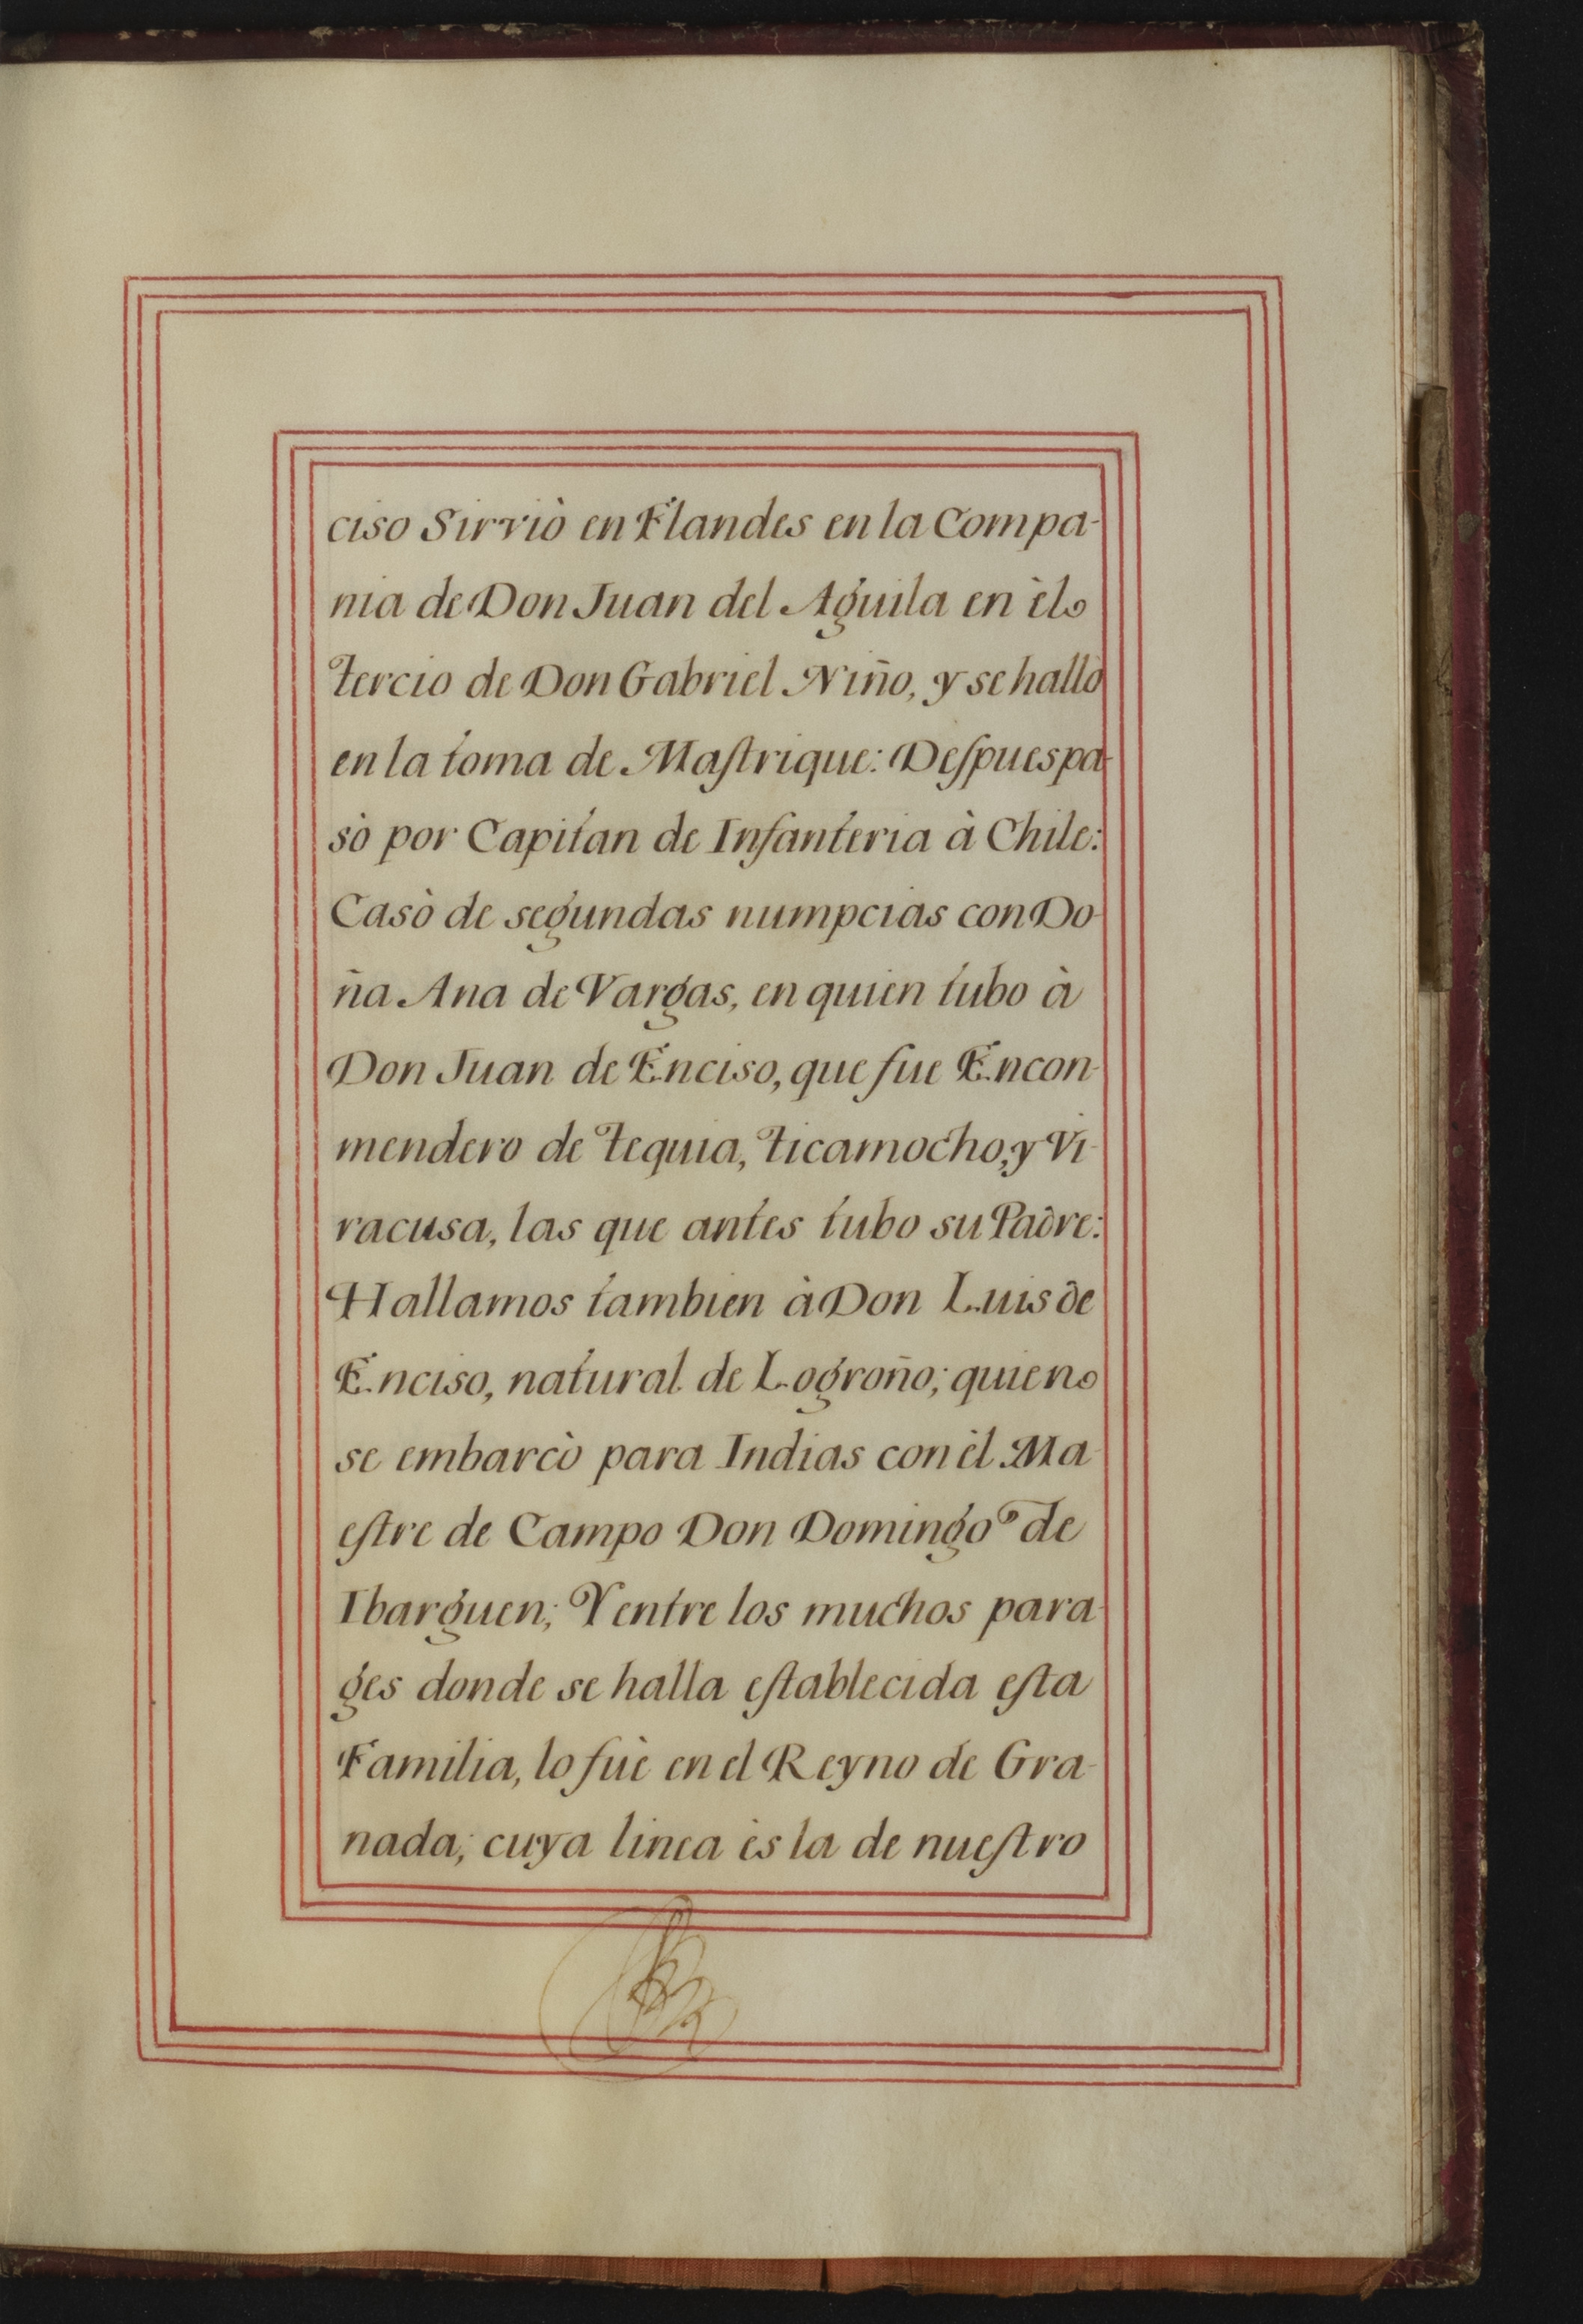 ciso Sirviò en Flandes en la Compa-
nia de Don Juan del Aguila en èl
tercio de Don Gabriel Niño, y se hallò
en la toma de Maſtrique: Deſpues pa-
sò por Capitan de Infanteria à Chile:
Casò de segundas numpcias con Do-
ña Ana de Vargas, en quien tubo à
Don Juan de Enciso, que fue Encon-
mendero de Tequia, Ticamocho, y Vi-
racusa, las que antes tubo su Padre:
Hallamos tambien à Don Luis de
Enciso, natural de Logroño; quien
se embarcò para Indias con èl Ma-
eſtre de Campo Don Domingo de
Ibarguen; Y entre los muchos para-
ges donde se halla eſtablecida eſta
Familia, lo fuè en el Reyno de Gra-
nada; cuya linea ès la de nueſtro